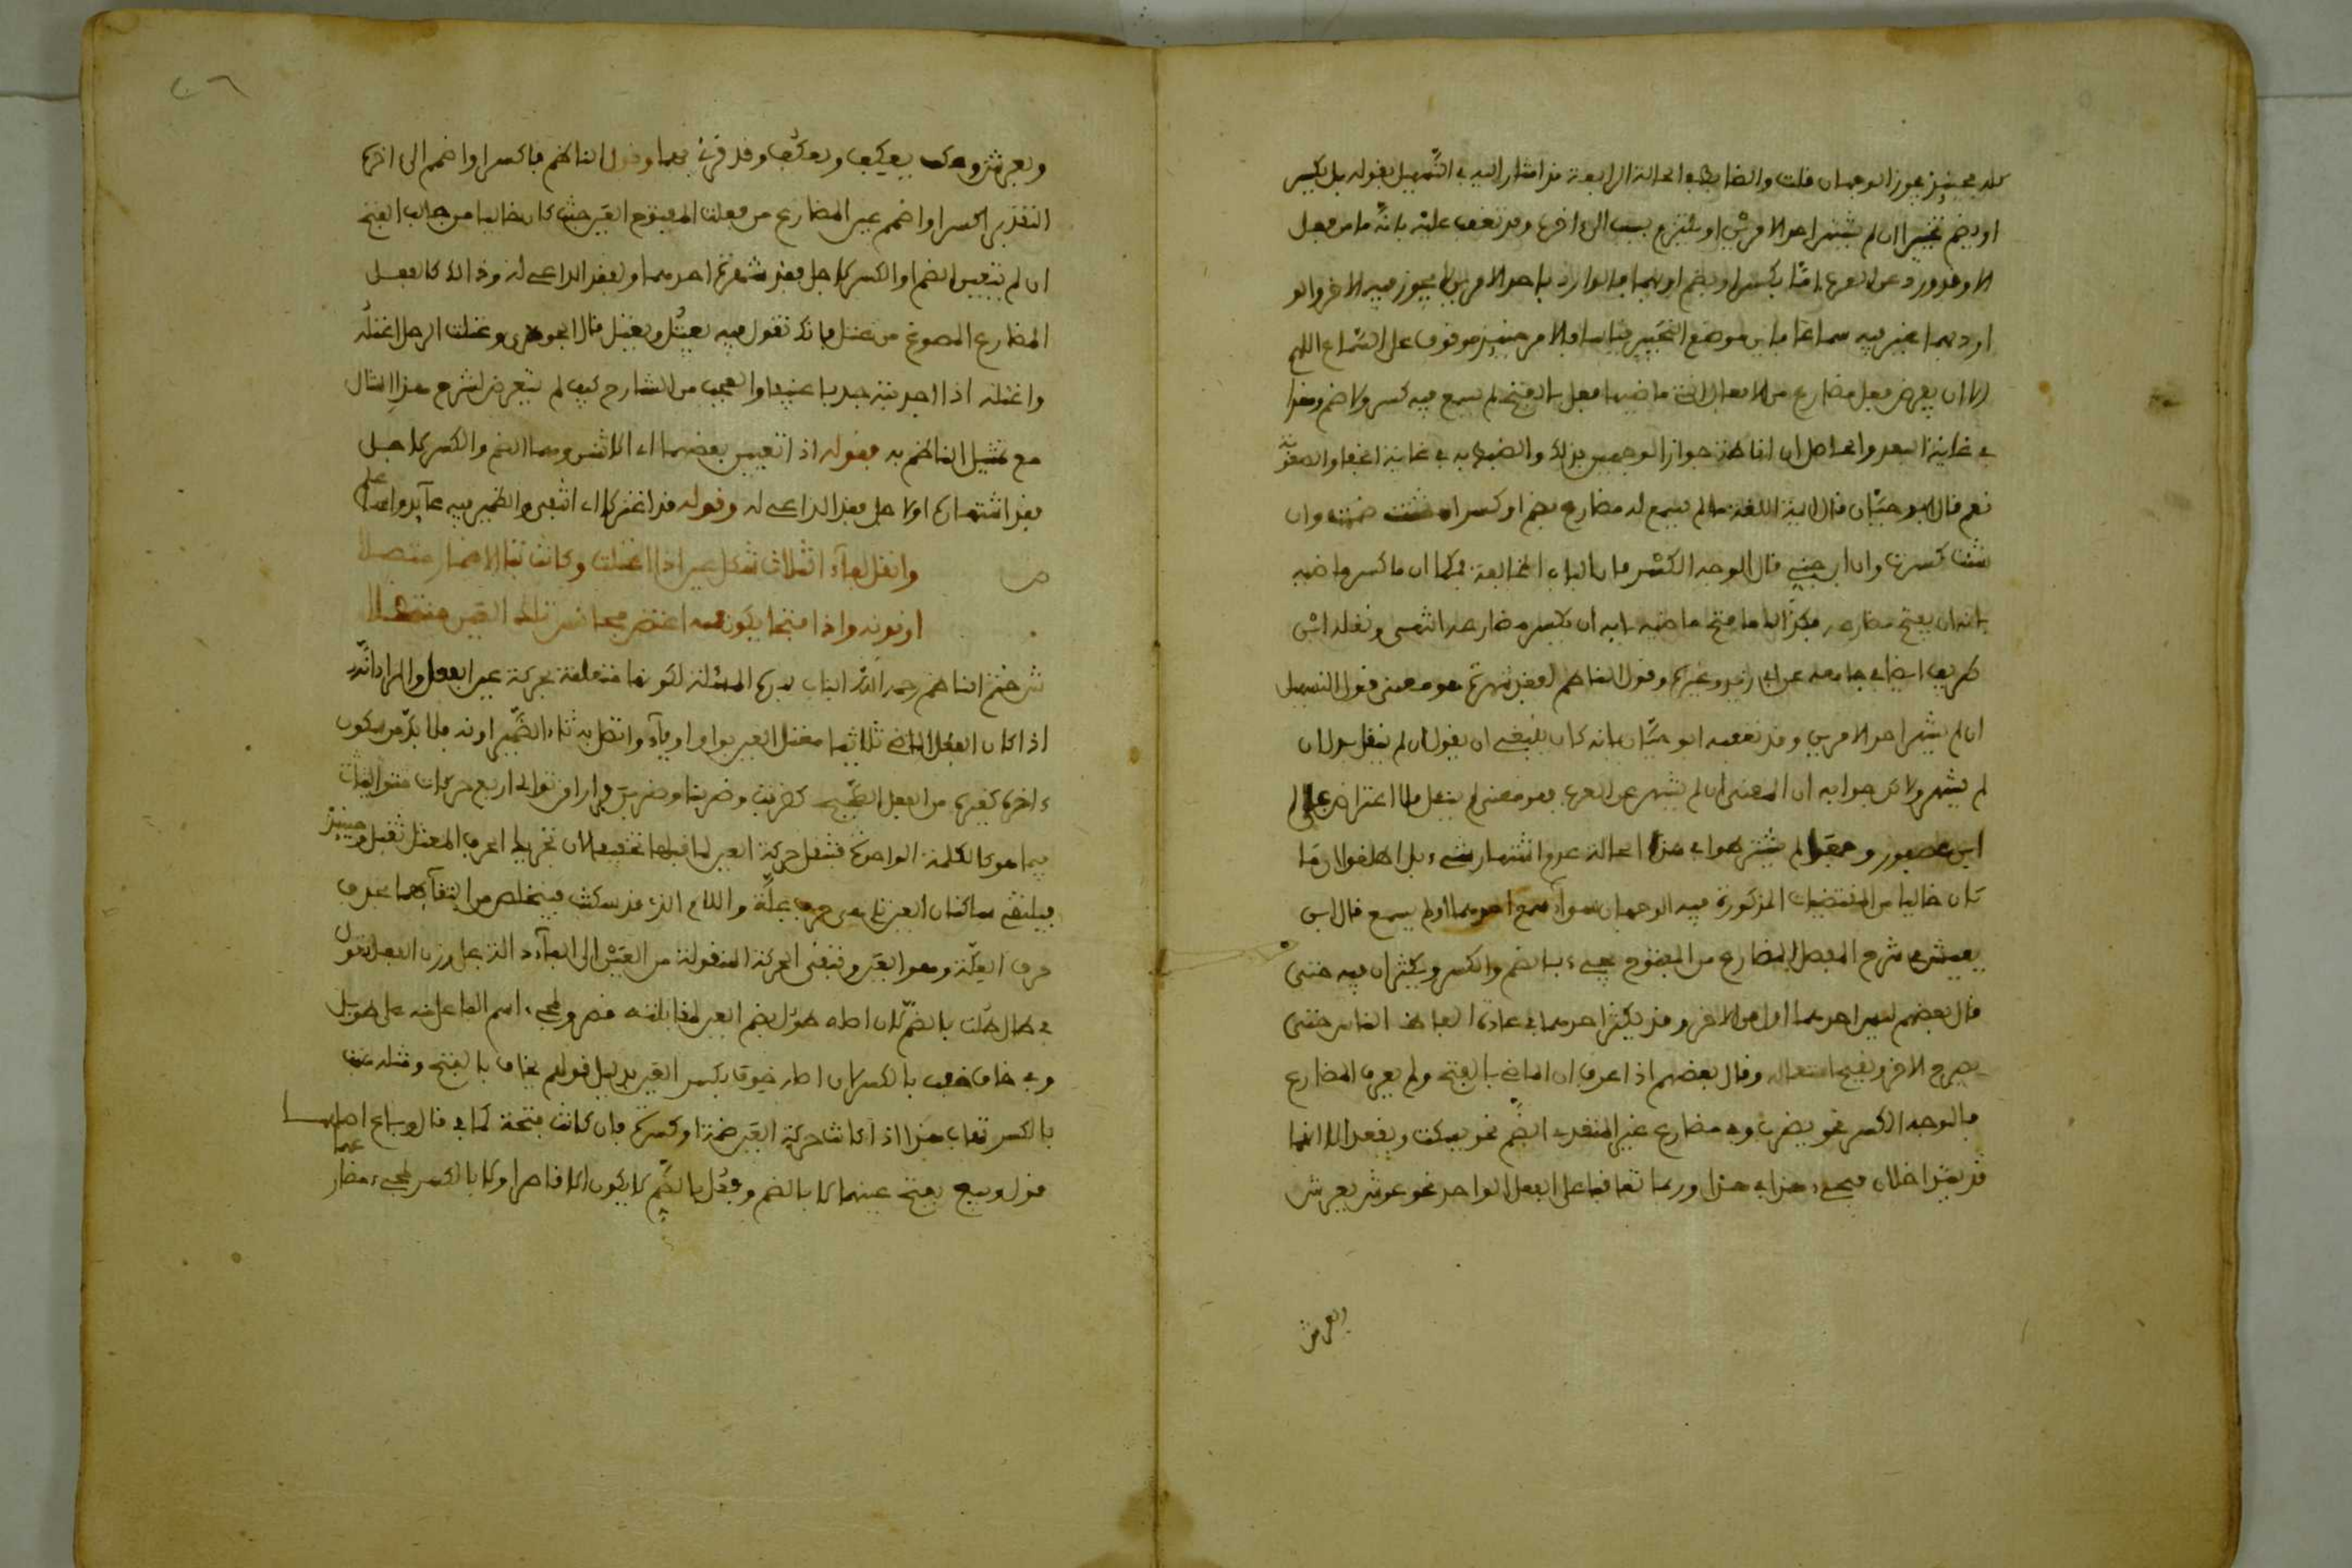 كله فحينئذ يجوز الوجهان قلت والضابط في الحالة الرابعة قد اشار اليه في التسهيل بقوله بل يكسر
او يضم تخييرا ان لم يشتهر احد الامرين او يلتزم لسبب الى اخره وقد تعقب عليه بانه ما من فعل
الا وقد ورد عن العرب اما بكسر او بضم او بهما فالوارد باحد الامرين لا يجوز فيه الاخر والو
ارد بهما اعتبر فيه سماعا فاين موضع التخيير قياسا والامر حينئذ موقوف على السماع اللهم
الا ان يعرض فعل مضارع من الافعال التي ماضيها فعل بالفتح لم يسمع فيه كسر ولا ضم وهذا
في غاية البعد والحاصل ان اناطة جواز الوجهين بذلك والضبط به في غاية الخفا والصعوبة
نعم قال ابو حيان قال ايمة اللغة ما لم يسمع له مضارع بضم او كسر ان شئت ضممته وان
شئت كسرته وان ابن جني قال الوجه الكسر فان الباب المخالفة فكما ان ما كسر ماضيه
بابه ان يفتح مضارعه فكذالك ما فتح ماضيه بابه ان يكسر مضارعه انتهى ونقله ابن
ظريف ايضا في جامعه عن ابي زيد وغيره وقول الناظم لفقد شهرة هو معنى قول التسهيل
ان لم يشهر احد الامرين وقد تعقبه ابو حيان بانه كان ينبغي ان يقول ان لم ينقل بدل ان
لم يشهر ولاكن جوابه ان المعنى ان لم يشهر عن العرب فهو معنى لم ينقل فلا اعتراض
ابن عصفور لم يشترطوا في هذه الحالة عدم اشتهار شيء بل اطلقوا ان ما
كان خاليا من المقتضيات المذكورة فيه الوجهان سواء سمع احدهما او لم يسمع قال ابن
يعيش في شرح المفصل المضارع من المفتوح يجيء بالضم والكسر ويكثران فيه حتى
قال بعضهم ليس احدهما اولى من الاخر وقد يكثر احدهما في عادة الفاظ الناس حتى
يطرح الاخر ويقبح استعماله وقال بعضهم اذا عرف ان الماضي بالفتح ولم يعرف المضارع
فالوجه الكسر نحو يضرب وفي مضارع غير المتعدي الضم نحو يسكت ويقعد الا انهما
قد يتداخلان فيجيء هذا في هذا وربما تعاقبا على الفعل الواحد نحو عرش يعرش
ويعرش
ويعرش وعكف يعكف ويعكف وقد قرئ بهما وقول الناظم فاكسر او اضمم الى اخره
التقدير اكسر او اضمم عين المضارع من فعلت المفتوح العين حيث كان خاليا من جالب الفتح
ان لم يتعين الضم او الكسر لاجل فقد شهرة احدهما او لفقد الداعي له وذالك كالفعل
المضارع المصوغ من عتل فانك تقول فيه يعتل ويعتل قال الجوهري وعتلت الرجل اعتله
واعتله اذا جذبته جذبا عنيفا والعجب من الشارح كيف لم يتعرض لشرح هذا المثال
مع تمثيل الناظم به فقوله اذا تعيين بعضهما اي الاثنين وهما الضم والكسر لاجل
فقد اشتهاره او لاجل فقد الداعي له وقوله قد اعتزلا اي انتفى والضمير فيه عايد على
ص وانقل لفاء الثلاث شكل عين اذا اعتلت وكانت بتا الاضمار متصلا
او نونه واذا فتحا يكون منه اعتض مجانس تلك العين منتقلا
ش ختم الناظم رحمه الله الباب بهذه المسئلة لكونها متعلقة بحركة عين الفعل والمراد انه
اذا كان الفعل الماضي ثلاثيا معتل العين بواو او ياء واتصل به تاء الضمير او نه فلا بد من سكون
ءاخره كغيره من الفعل الصحيح كضربت وضربنا وضربن فرارا من توالي اربع حركات متواليات
فيما هو كالكلمة الواحدة فتنقل حركة العين لما قبلها تخفيفا لان تحريك الحرف المعتل ثقيل وحينئذ
فيلتقي ساكنان العين التي هي حرف علة واللام الذي قد سكنت فيتخلص من التقائهما بحذف
حرف العلة وهو العين وتبقى الحركة المنقولة من العين الى الفاء دالة على وزن الفعل تقول
في طال طلت بالضم لان اصله طول بضم العين لمقابلته قصر ولمجيء اسم الفاعل منه على طويل
وفي خاف خفت بالكسر لان اصله خوف بكسر العين بدليل قولهم يخاف بالفتح ومثله هبت
بالكسر تهاب هذا اذا كانت حركة العين ضمة او كسرة فان كانت فتحة كما في قال وباع اصلهما
قول وبيع بفتح عينهما لا بالضم وفعل بالضم لا يكون الا قاصرا ولا بالكسر لمجيء مضارعهما